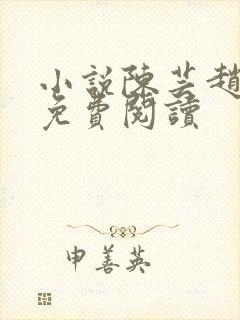 小說陳芸趙
免費閱讀
申善英